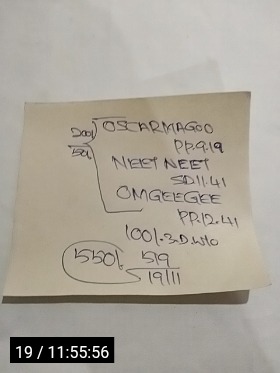 200/ OSCARMAGOO
50/ P.P.9.19
NEET NEET
SD11.41
OMGEEGEE
PP.12.41
100/.3.D.W10
550/. 5/9
19/11
19 / 11:55:56